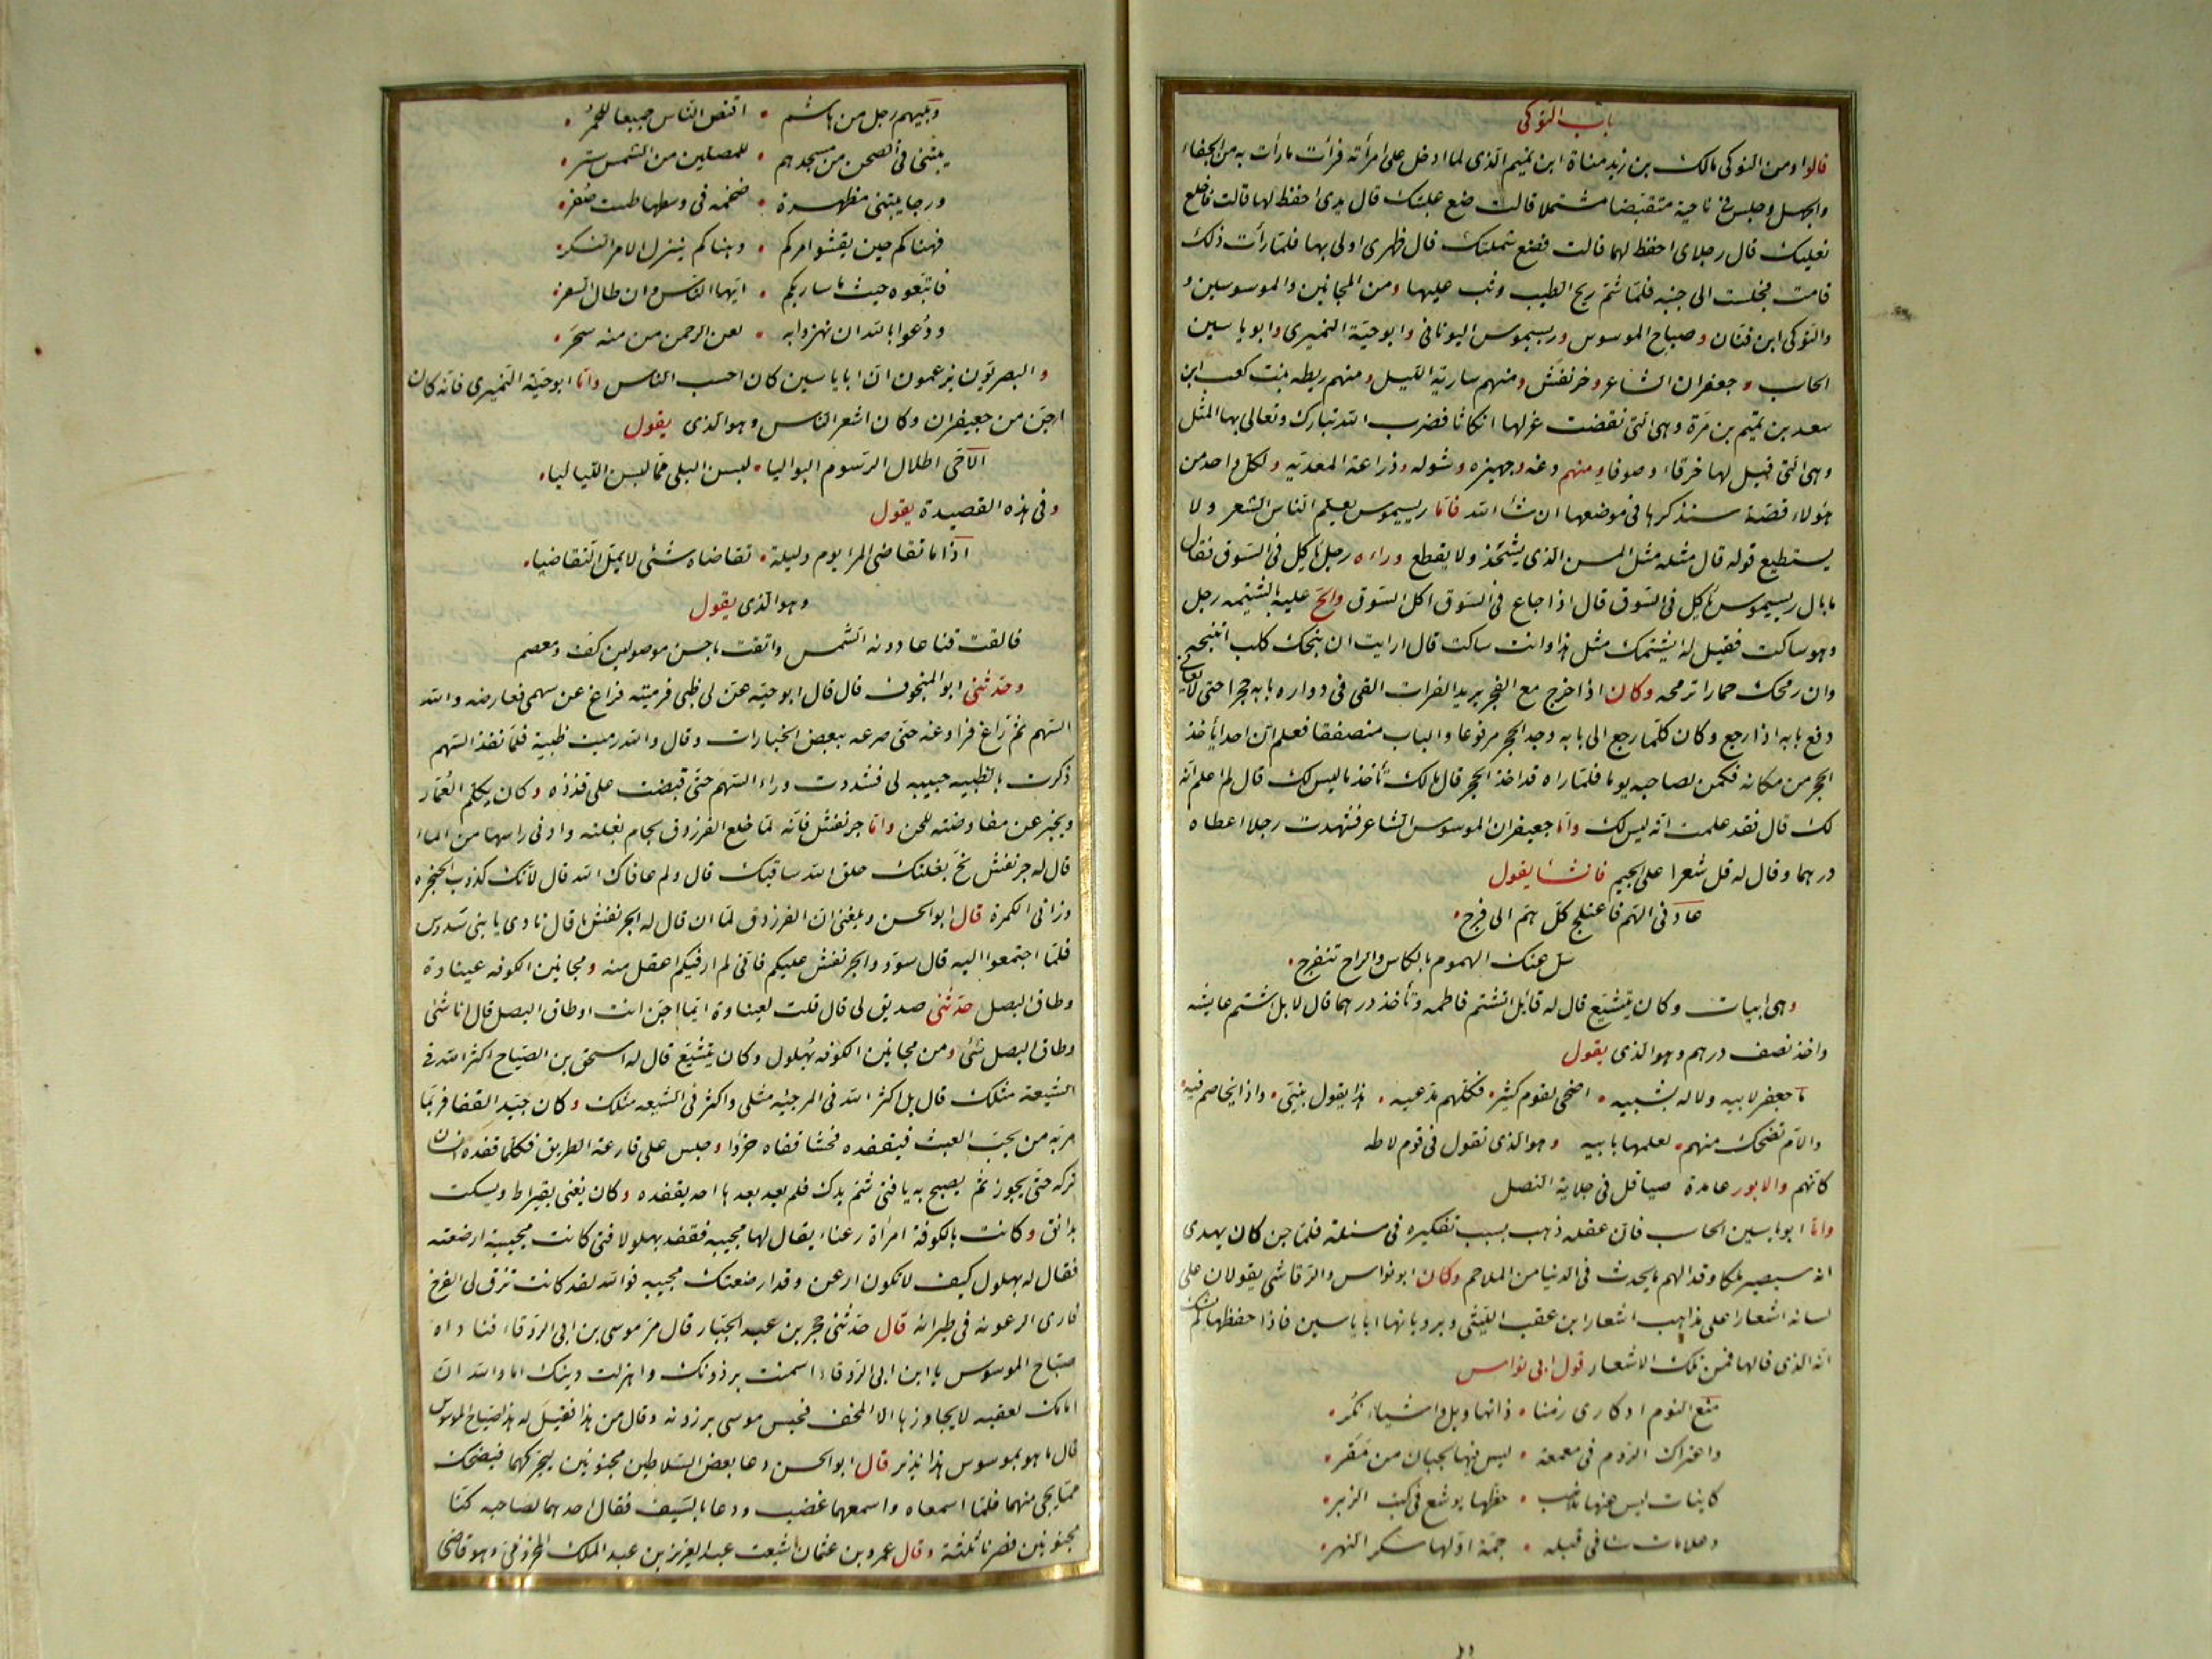 باب النوكى
قالوا ومن النوكى مالك بن زيد مناة ابن تميم الذى لما ادخل على امرأته فرأت مارأت به من الجفاء
والجهل وجلس فى ناحية متقبضا مشتملا قالت ضع علبتك قال يدى احفظ لها قالت فاخلع
نعليك قال رجلاى احفظ لهما قالت فضع شملتك قال ظهرى اولى بها فلما رأت ذلك
قامت فجلست الى جنبه فلما شم ريح الطيب وثب عليها ومن المجانين والموسوسين و
والنوكى ابن قنان وصباح الموسوس وريسيموس اليونانى وابو حية النميرى وابو ياسين
الحاسب و جعفران الشاعر وجرنفش ومنهم سارية الليل ومنهم ريطه بنت كعب ابن
سعد بن تميم بن مرة وهى التى نقضت غزلها انكاثا فضرب الله تبارك وتعالى بها المثل
وهى التى قيل لها خرقاء وصوفا ومنهم دغه وجهيزه وشوله وذراعة المعديه ولكل واحد من
هؤلاء قصة سنذكرها فى موضعها ان شأ الله فاما ريسيموس يعلم الناس الشعر ولا
يستطيع قوله قال مثله مثل المسن الذى يشحذ ولا يقطع وراءه رجل ياكل فى السوق فقال
ما بال ريسيموس ياكل فى السوق قال اذا جاع فى السوق اكل السوق والح عليه بالشتيمه رجل
وهو ساكت فقيل له ايشتمك مثل هذا وانت ساكت قال ارايت ان نبحك كلب اتنبحه
وان رمحك حمار اترمحه وكان اذا خرج مع الفجر يريد الفرات القى فى دواره بابه حجرا حتى لا يعانى
دفع بابه اذا رجع وكان كلما رجع الى بابه وجد الحجر مرفوعا والباب منصفقا فعلم ان احدا يأخذ
الحجر من مكانه فكمن لصاحبه يوما فلما راه قد اخذ الحجر قال مالك تأخذ ما ليس لك قال لم اعلم انه
لك قال فقد علمت انه ليس لك واما جعيفران الموسوس الشاعر فشهدت رجلا اعطاه
درهما وقال له قل شعرا على الجيم فانشا يقول
عادنى الهم فاعتلج كل هم الى فرج
سل عنك الهموم بالكاس والراح تنفرج
وهى ابيات وكان يتشيع قال له قائل اتشتم فاطمه وتأخذ درهما قال لا بل اشتم عايشه
واخذ نصف درهم وهو الذى يقول
ما جعفر لابيه ولا له بشبيه اضحى لقوم كثير فكلهم يدعيه هذا يقول بنيى وذا يخاصم فيه
والام تضحك منهم لعلمها بابيه وهو الذى يقول فى قوم لاطه
كانهم والايور عامدة صياقل فى جلاية النصل
واما ابو ياسين الحاسب فان عقله ذهب بسبب تفكيره فى مسئلة فلما جن كان يهدى
انه سيصير ملكا وقد الهم ما يحدث فى الدنيا من الملاحم وكان ابو نواس والرقاشى يقولان على
لسانه اشعارا على مذاهب اشعار ابن عقب الليثى ويرويانها ابا ياسين فاذا حفظها لم يشك
انه الذى قالها فمن تلك الاشعار قول ابى نواس
منع النوم ادكارى زمنا ذا تهاويل واشياء نكر
واعتراك الروم فى معمعة ليس فيها لجبان من مقر
كاينات ليس عنها مذهب خطها يوشع فى كتب الزبر
وعلامات ستاتى قبله جمة اولها سكر النهر
ويليهم رجل من هاشم اقنص الناس جميعا للحمر
يبتنى فى الصحن من مسجدهم للمصلين من الشمس ستر
ورجا يبتنى مطهرة ضخمه فى وسطها طست صفر
فهناكم حين يفشو امركم وهناكم ينزل الامر النكر
فاتبعوه حيث ما ساربكم ايها الناس وان طال السفر
ودعوا بالله ان تهزوا به لعن الرحمن من منه سخر
والبصريون يزعمون ان ابا ياسين كان احسب الناس واما ابو حية النميرى فانه كان
اجن من جعيفران وكان اشعر الناس وهو الذى يقول
الا حى اطلال الرسوم البواليا لبسن البلى مما لبسن اللياليا
وفى هذه القصيدة يقول
اذا ما تقاضى المرا يوم وليلة تقاضاه شئى لا يمل التقاضيا
وهو الذى يقول
فالقت قناعا دونه الشمس واتقت باحسن موصولين كف ومعصم
وحدثنى ابو المنجوف قال قال ابو حيه عن لى ظبى فرميته فراغ عن سهمى فعارضه والله
السهم ثم راغ فراوغه حتى صرعه ببعض الخبارات وقال والله رميت ظبية فلما نفذ السهم
ذكرت بالظبيه حبيبه لى فشددت وراء السهم حتى قبضت على قذذه وكان يكلم العمار
ويخبر عن مفاوضته للجن واما جرنفش فانه لما خلع الفرزدق لجام بغلته وادنى راسها من الماء
قال له جرنفش نح بغلتك حلق الله ساقيك قال ولم عافاك الله قال لانك كذوب الحنجره
وزانى الكمرة قال ابو الحسن وبلغنى ان الفرزدق لما ان قال له الجرنفش ما قال نادى يا بنى سدوس
فلما اجتمعوا اليه قال سودوا الجرنفش عليكم فانى لم ار فيكم اعقل منه ومجانين الكوفه عيناوة
وطاق البصل حدثنى صديق لى قال قلت لعيناوة ايما اجن انت او طاق البصل قال انا شئى
وطاق البصل شئى ومن مجانين الكوفه بهلول وكان يتشيع قال له اسحق بن الصباح اكثر الله فى
الشيعة مثلك قال بل اكثر الله فى المرجئه مثلى واكثر فى الشيعه مثلك وكان جيد القفا فربما
مر به من يحب العبث فيقفده فحشا قفاه خرؤا وجلس على قارعة الطريق فكلما قفده انسان
تركه حتى يجوز ثم يصيح به يا فتى شم يدك فلم يعد بعدها احد يقفده وكان يغنى بقيراط ويسكت
بدانق وكانت بالكوفة امراة رعناء يقال لها مجيبه فقفد بهلولا فتى كانت مجيبة ارضعته
فقال له بهلول كيف لا تكون ارعن وقد ارضعتك مجيبه فوالله لقد كانت تزق لى الفرخ
فارى الرعونة فى طيرانه قال حدثنى حجر بن عبد الجبار قال مر موسى بن ابى الردقاء فناداه
صباح الموسوس يا ابن ابى الردقاء اسمنت برذونك واهزلت دينك اما والله ان
امامك لعقبه لا يجاوزها الا المخف فحبس موسى برزونه وقال من هذا فقيل له هذا صباح الموسوس
قال ما هو بموسوس هذا نذير قال ابو الحسن دعا بعض السلاطين مجنونين ليحركهما فيضحك
مما يجى منهما فلما اسمعاه واسمعهما غضب ودعا بالسيف فقال احدهما لصاحبه كنا
مجنونين فصرنا ثلثة وقال عمرو بن عثمان شيعت عبد العزيز بن عبد الملك المخزومى وهو قاضى